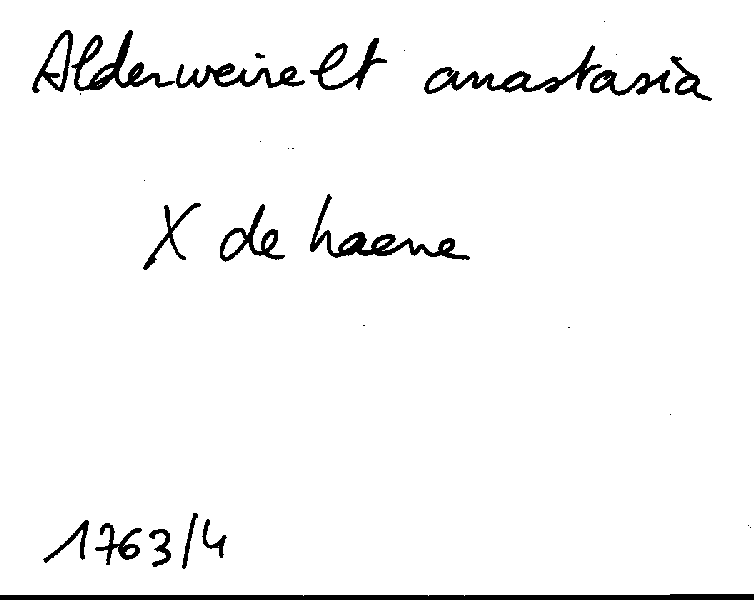 Alderweirelt anastasia
X de haene
1763/4